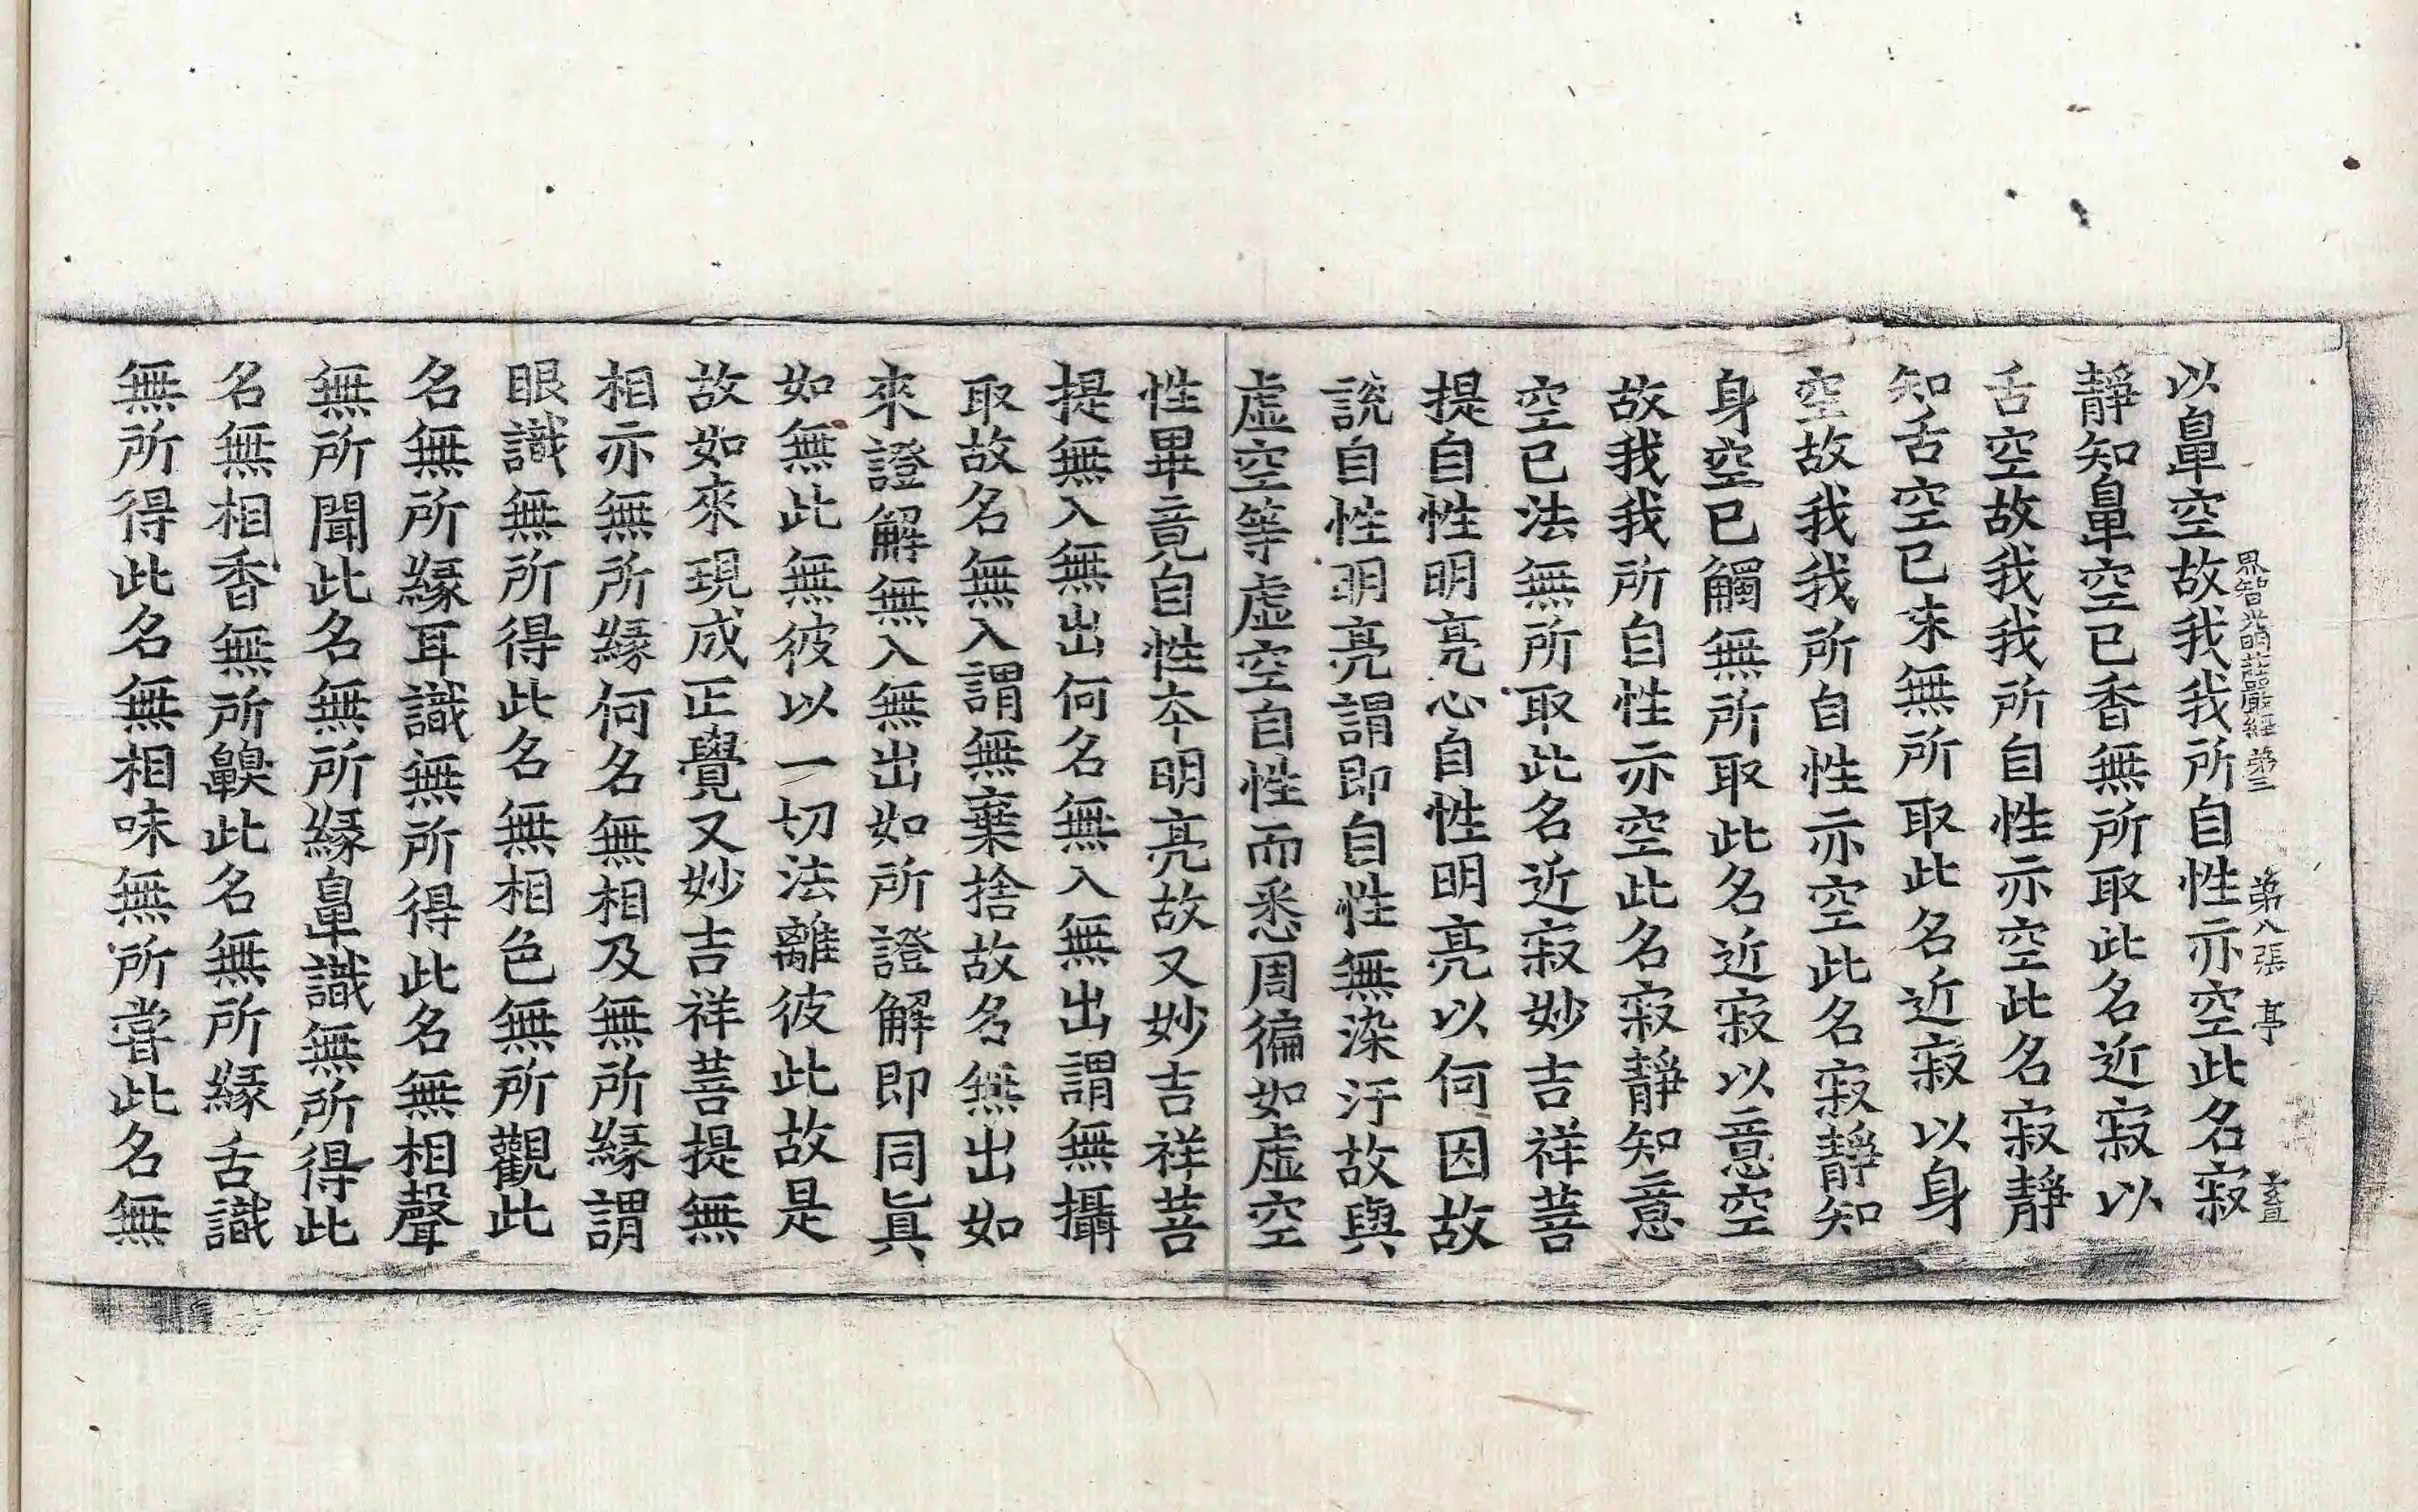 界智光明莊嚴經 第三 第八張 亭
以鼻空故我我所自性亦空此名寂
靜知鼻空已香無所取此名近寂以
舌空故我我所自性亦空此名寂靜
知舌空已味無所取此名近寂以身
空故我我所自性亦空此名寂靜知
身空已觸無所取此名近寂以意空
故我我所自性亦空此名寂靜知意
空已法無所取此名近寂妙吉祥菩
提自性明亮心自性明亮以何因故
說自性明亮謂即自性無染汙故與
虛空等虛空自性而悉周徧如虛空
性畢竟自性本明亮故又妙吉祥菩
提無入無出何名無入無出謂無攝
取故名無入謂無棄捨故名無出如
來證解無入無出如所證解即同眞
如無此無彼以一切法離彼此故是
故如來現成正覺又妙吉祥菩提無
相亦無所緣何名無相及無所緣謂
眼識無所得此名無相色無所觀此
名無所緣耳識無所得此名無相聲
無所聞此名無所緣鼻識無所得此
名無相香無所齅此名無所緣舌識
無所得此名無相味無所嘗此名無